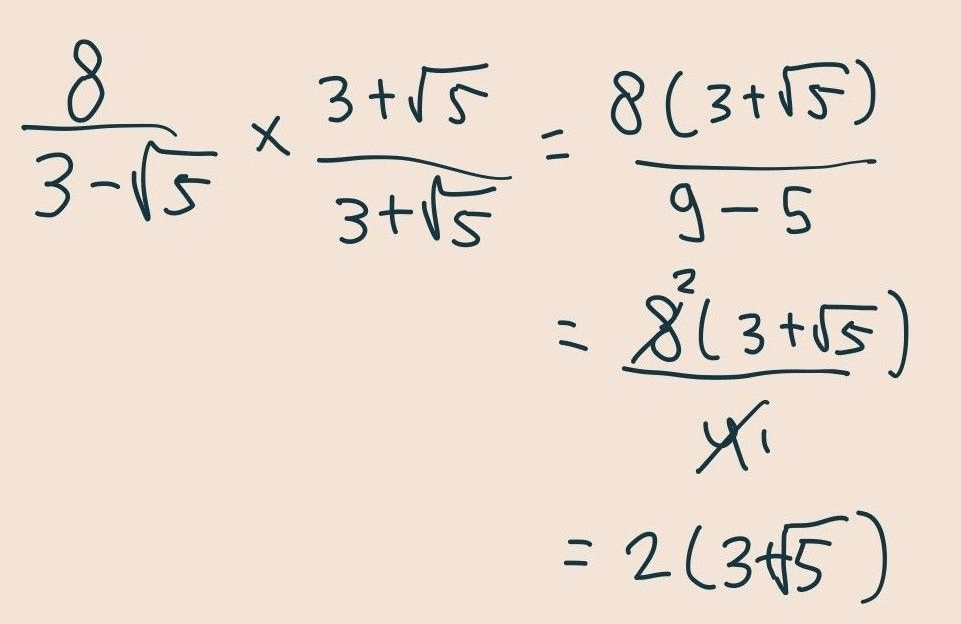 8/(3-√5) × (3+√5)/(3+√5) = 8(3+√5)/(9-5)
= 8̸²(3+√5)/4̸₁
= 2(3+√5)